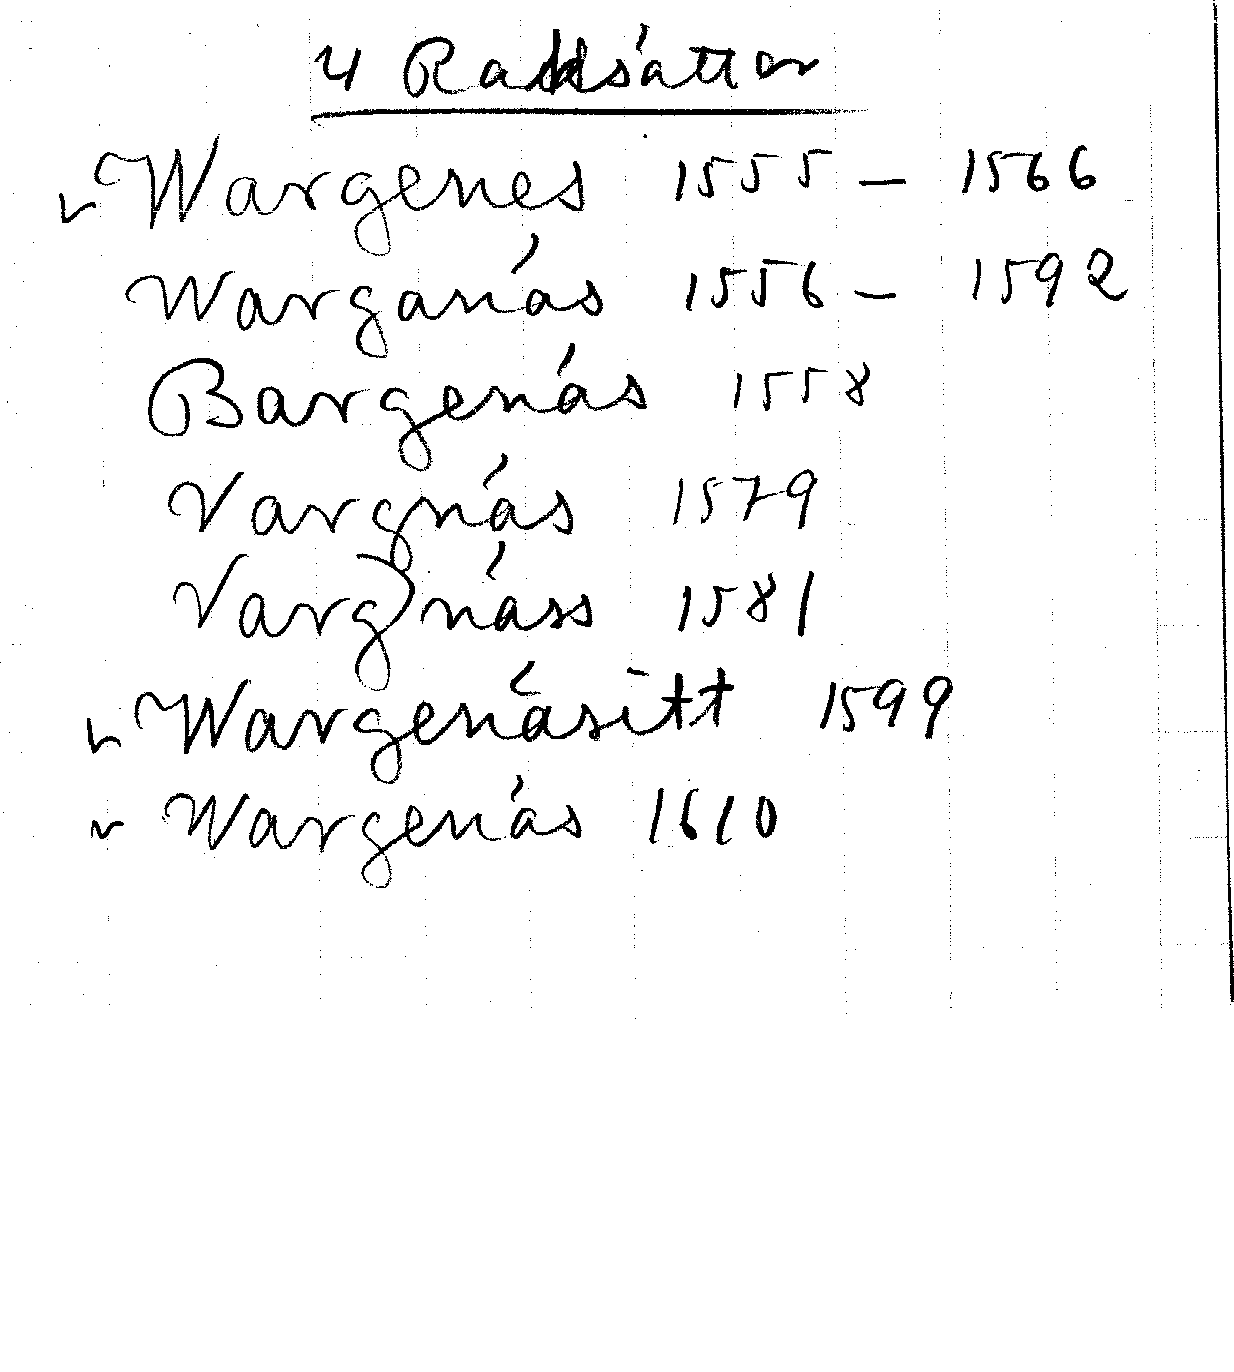 4
Wargenes 1555 – 1566
Warganás 1556 – 1592
Bargenás 1558
Vargnás 1579
Vargnáss 1581
Wargenásitt 1599
Wargenás 1610